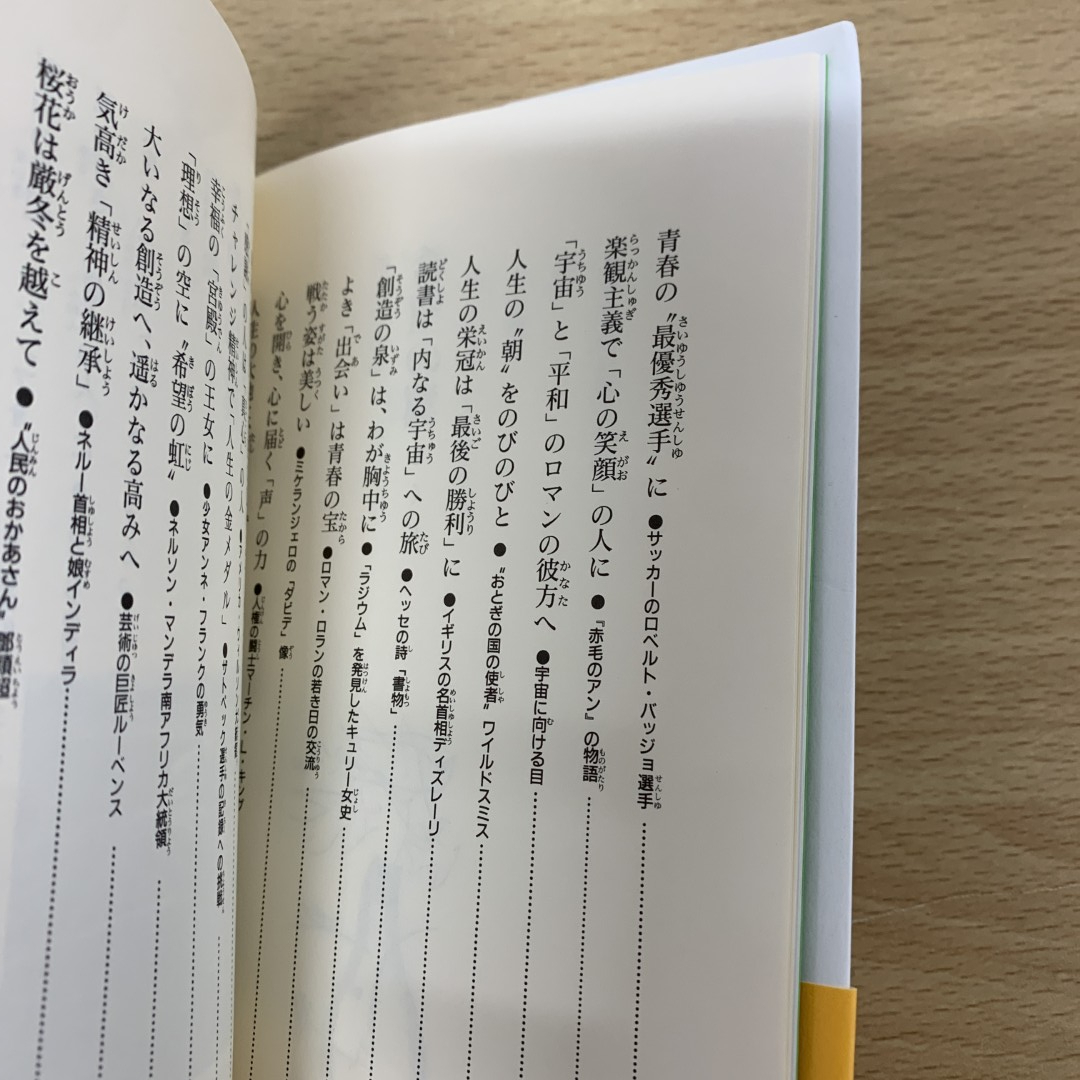 青春の〝最優秀選手〟に ●サッカーのロベルト・バッジョ選手
楽観主義で「心の笑顔」の人に ●『赤毛のアン』の物語
「宇宙」と「平和」のロマンの彼方へ ●宇宙に向ける目
人生の〝朝〟をのびのびと ●〝おとぎの国の使者〟ワイルドスミス
人生の栄冠は「最後の勝利」に ●イギリスの名首相ディズレーリ
読書は「内なる宇宙」への旅 ●ヘッセの詩「書物」
「創造の泉」は、わが胸中に ●「ラジウム」を発見したキュリー女史
よき「出会い」は青春の宝 ●ロマン・ロランの若き日の交流
戦う姿は美しい ●ミケランジェロの「ダビデ」像
心を開き、心に届く「声」の力 ●人権の闘士マーチン・L・キング
の人に
の人
チャレンジ精神で「人生の金メダル」 ●サトペック選手の記録への挑戦
幸福の「宮殿」の王女に ●少女アンネ・フランクの勇気
「理想」の空に〝希望の虹〟 ●ネルソン・マンデラ南アフリカ大統領
大いなる創造へ、遥かなる高みへ ●芸術の巨匠ルーベンス
気高き「精神の継承」 ●ネルー首相と娘インディラ
桜花は厳冬を越えて ●〝人民のおかあさん〟